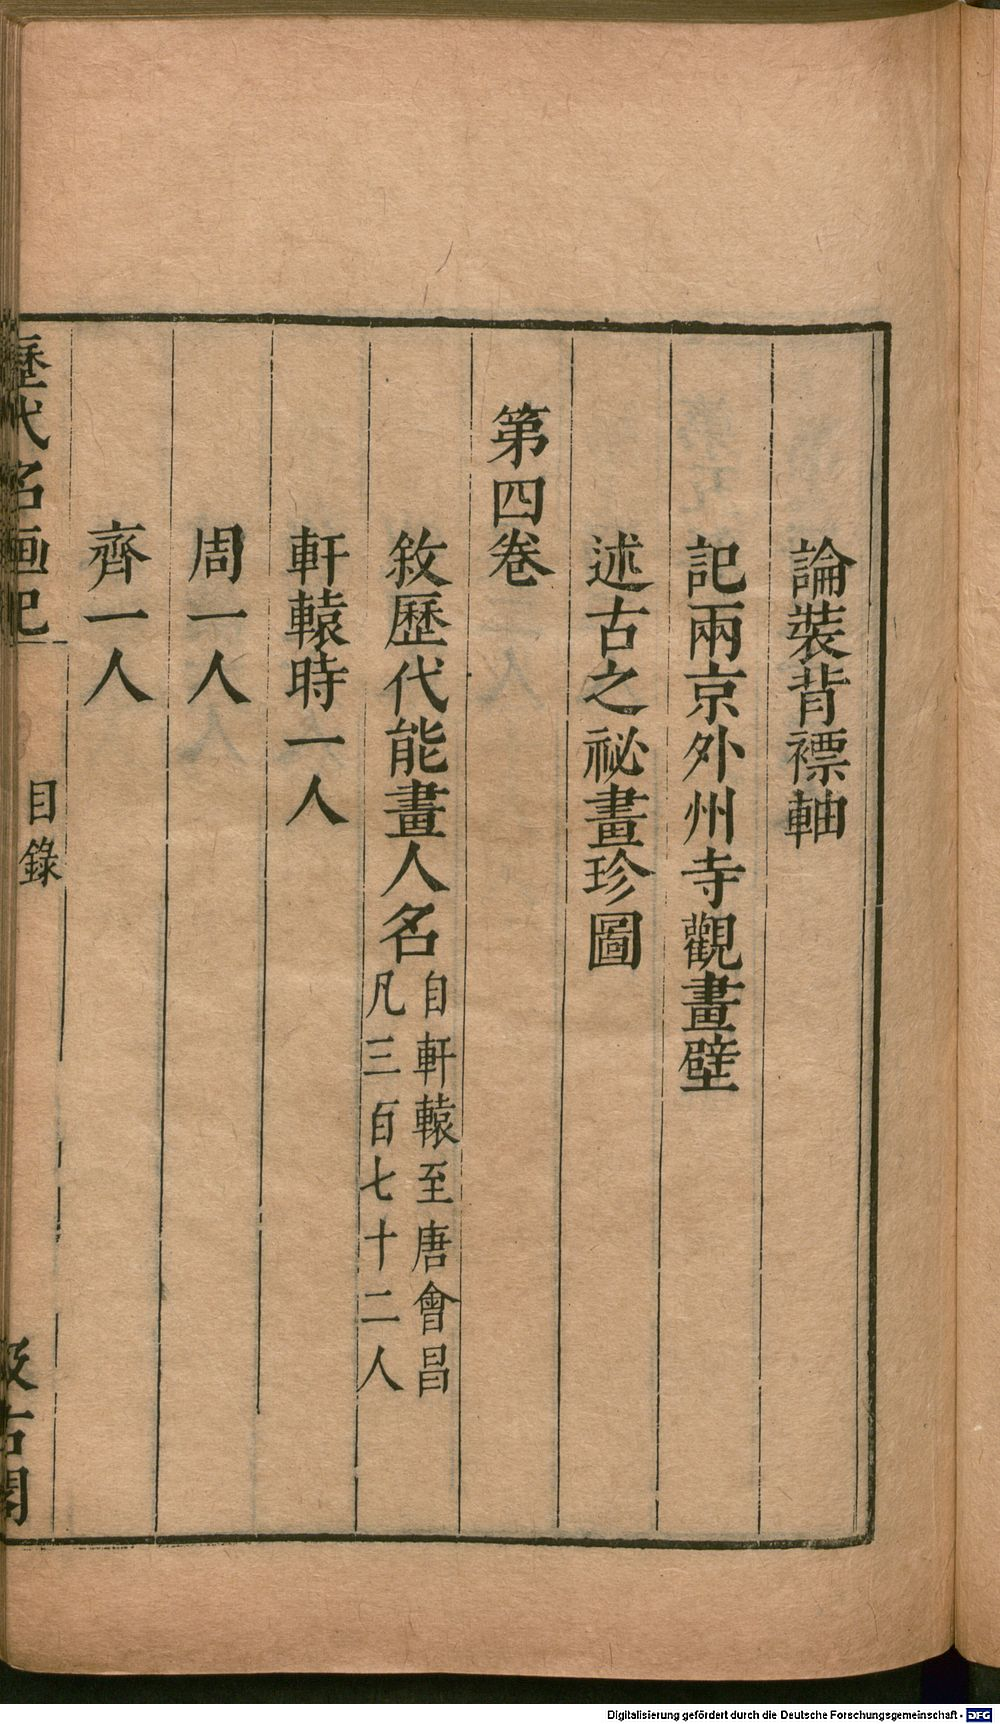 論裝背褾軸
記兩京外州寺觀畫壁
述古之祕畫珍圖
第四卷
敘歷代能畫人名
自軒轅至唐會昌
凡三百七十二人
軒轅時一人
周一人
齊一人
歷代名画記
目錄
汲古閣
Digitalisierung gefördert durch die Deutsche Forschungsgemeinschaft - DFG